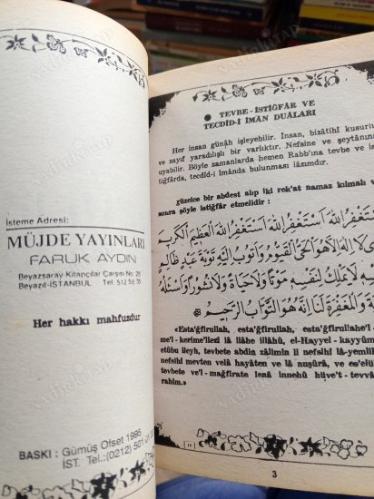 İsteme Adresi:
MÜJDE YAYINLARI
FARUK AYDIN
Beyazsaray Kitapçılar Çarşısı No: 25
Beyazıt-İSTANBUL Tel: 512 56
Her hakkı mahfuzdur
BASKI : Gümüş Ofset 1995
İST. Tel.:(0212) 501
TEVBE - İSTİĞFÂR VE
TECDİD-İ İMÂN DUÂLARI
Her insan günâh işleyebilir. İnsan, bizâtihî kusurlu
ve zayıf yaradılışlı bir varlıktır. Nefsine ve şeytânına
uyabilir. Böyle zamanlarda hemen Rabb'ına tevbe ve is
tiğfârda, tecdîd-i imânda bulunması lâzımdır.
güzelce bir abdest alıp iki rek'at namaz kılmalı ve
sonra şöyle istiğfar etmelidir :
اَسْتَغْفِرُ اللهَ اَسْتَغْفِرُ اللهَ الْعَظِيمَ الْكَرِيمَ
لَا اِلٰهَ اِلَّا هُوَ الْحَىُّ الْقَيُّومُ وَاَتُوبُ اِلَيْهِ تَوْبَةَ عَبْدٍ ظَالِمٍ
لَا يَمْلِكُ لِنَفْسِهِ مَوْتًا وَلَا حَيٰوةً وَلَا نُشُورًا وَاَسْئَلُهُ
وَالْمَغْفِرَةَ لَنَا اِنَّهُ هُوَ التَّوَّابُ الرَّحِيمُ
«Esta'ğfirullah, esta'ğfirullah, esta'ğfirullahe'l-
me'l - kerime'llezi lâ ilâhe illâhû, el-Hayyel - kayyûm
etûbü ileyh, tevbete abdin zâlimin li nefsihî lâ-yemlik
nefsihî mevten velâ hayâten ve lâ nuşûrâ, ve es'elü
tevbete ve'l - mağfirate lenâ innehû hüve't - tevvâ
rahîm.»
3